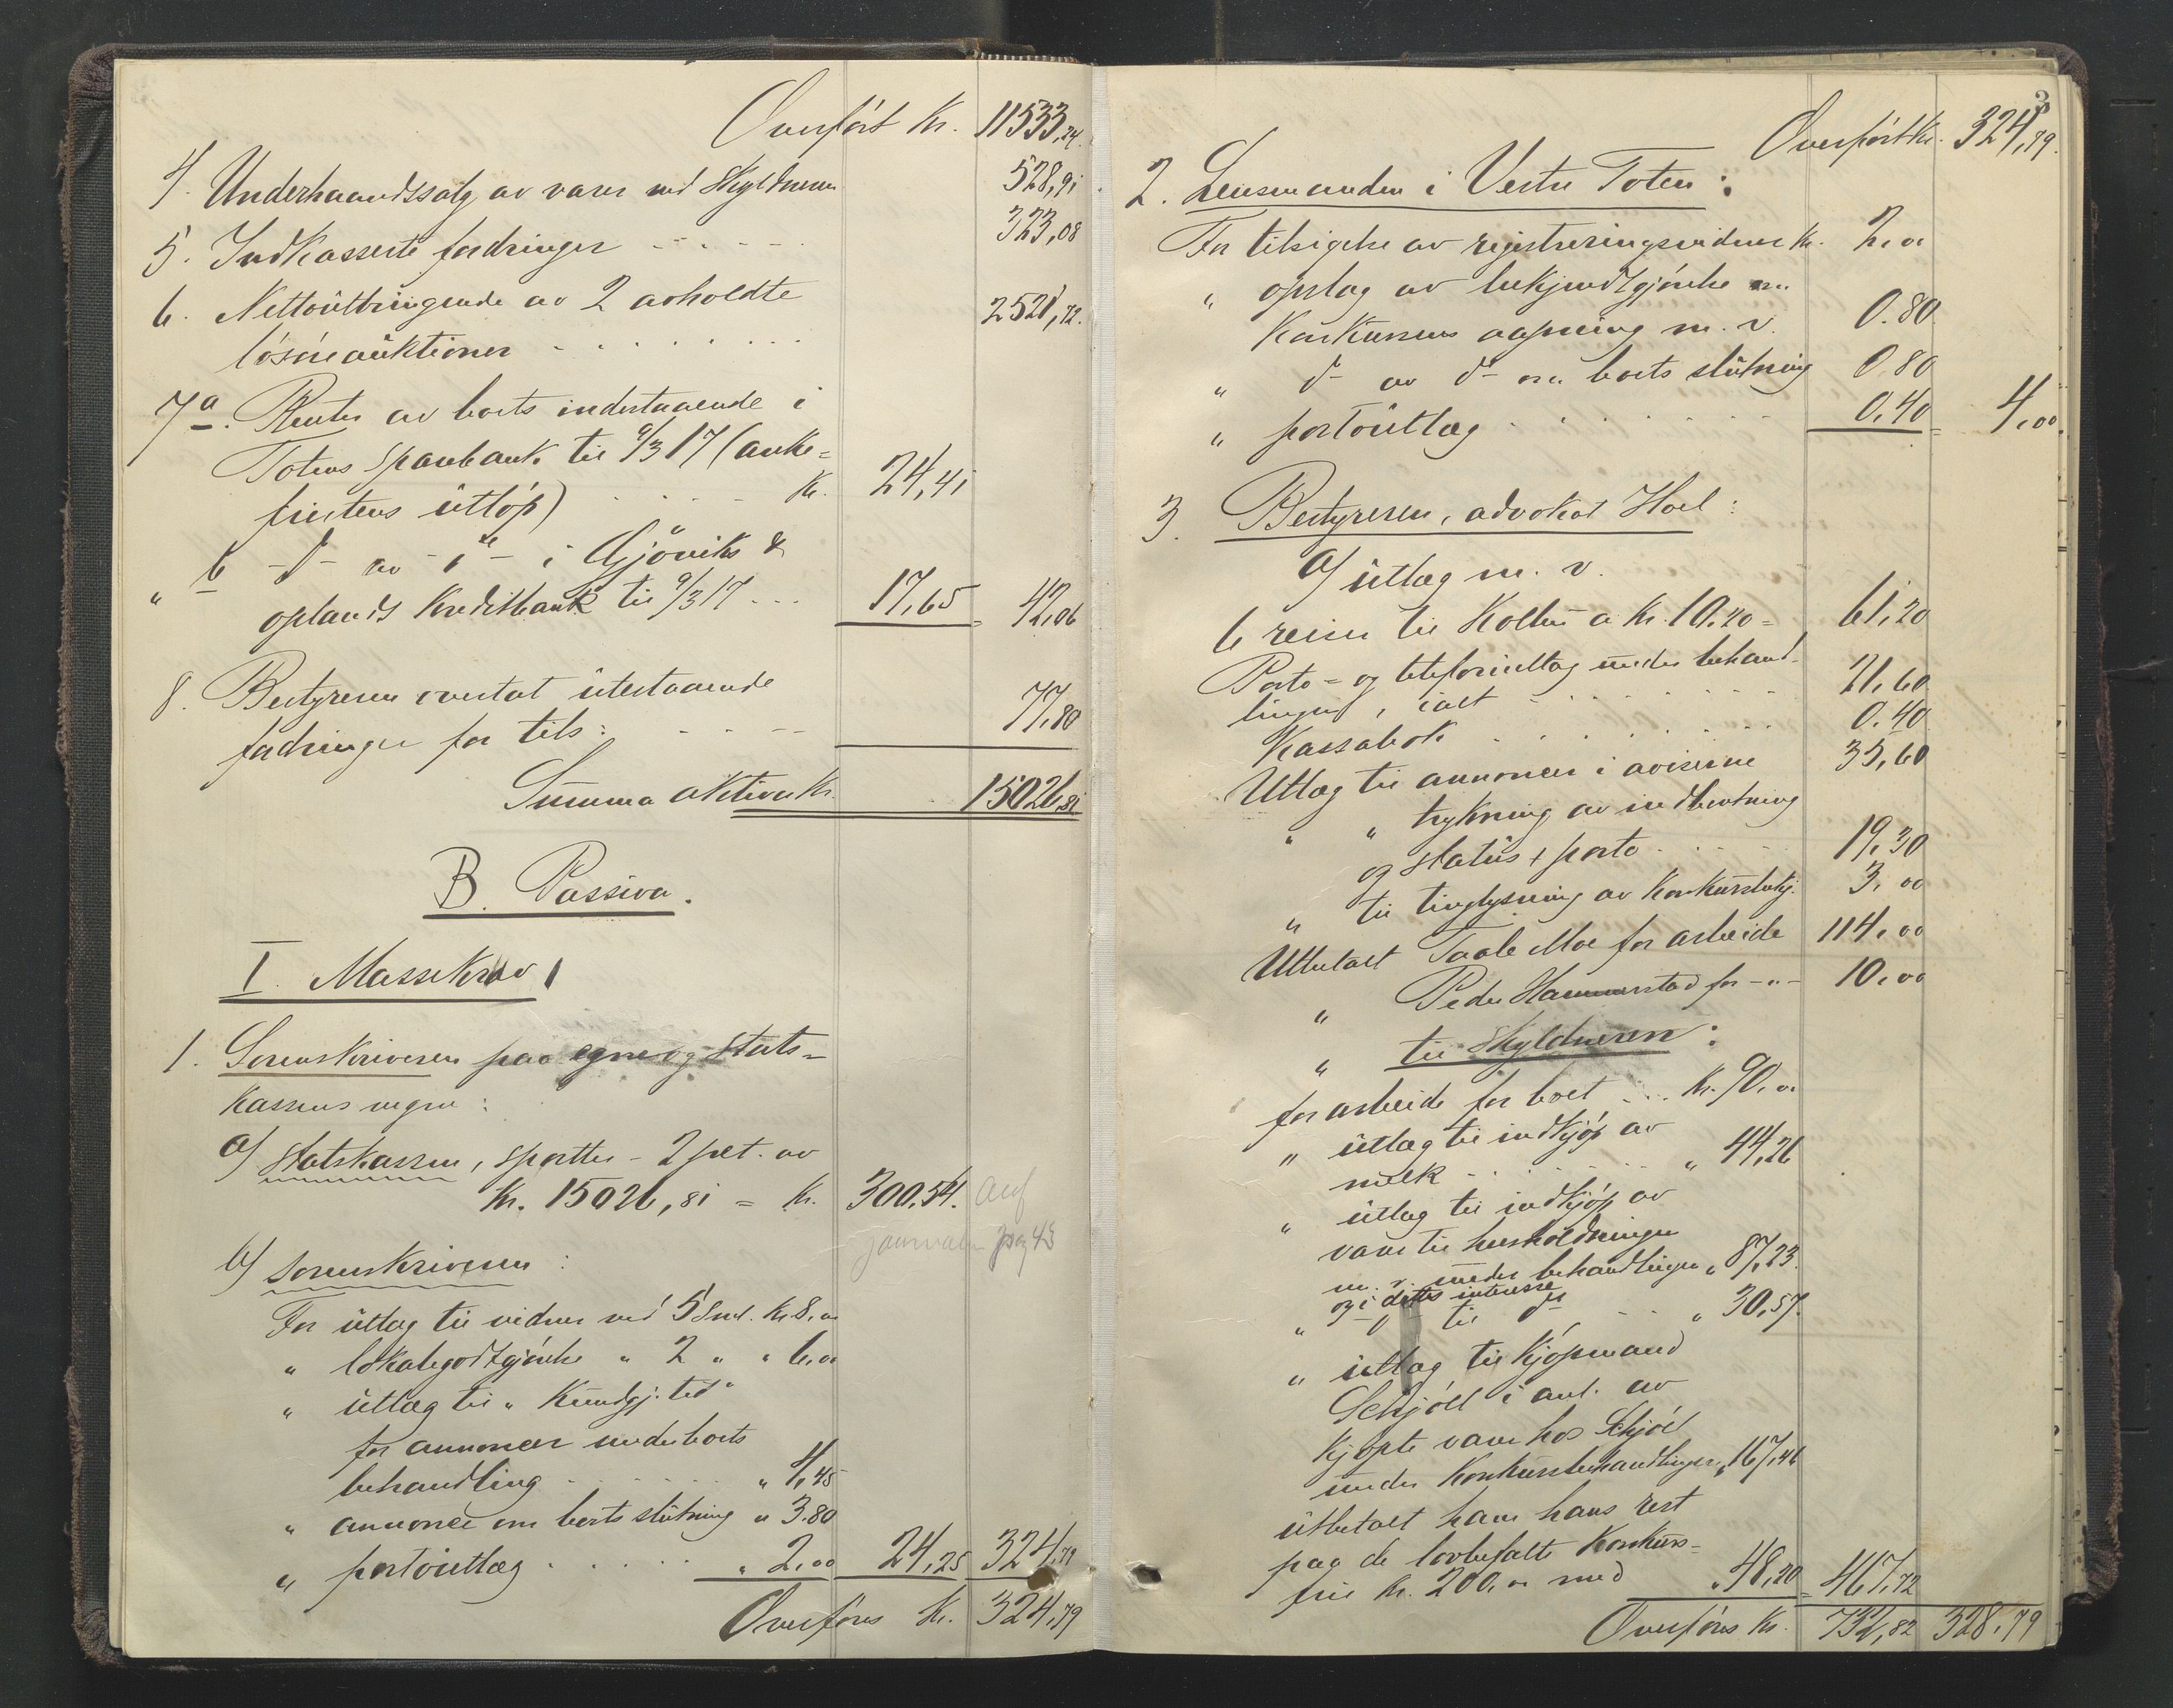 Overført Kr. 11533,24.
4. Underhaandssalg av varer ved Skyldneren 528,91
5. Indkasserte fordringer - - - - - 323,08
6. Nettoutbringende av 2 avholdte 2521,72.
løsøreauktioner - - - - - - - -
7a. Renter av boets indestaaende i
Totens Sparebank til 9/3 17 (anke-
fristens utløp) - - - - Kr. 24,41
" b -d- av -d- i Gjøviks &
oplands Kreditbank til 9/3 17 - - - 17,65 42,06
8. Bestyreren overtat utestaaende
fordringer for tils: - - - - 77,80
Summa aktiva Kr. 15026,81
B. Passiva.
I. Massekrav
1. Sorenskriveren paa egne og Stats-
kassens vegne:
a) Statskassen, sportler - 2 pct. av
Kr. 15026,81 = Kr. 300,54.
journalen pag 43
b) Sorenskriveren:
For utlæg til vidner ved 5 Sml. Kr. 8,00
" lokalegodtgjørelse " 2 " " 6,00
" utlæg til "Kundgj. tid"
for annoncer under boets
behandling - - - - - - " 4,45
" annonce om boets slutning " 3.80
" portoutlæg - - - - - " 2,00 24,25 324,79
Overføres Kr. 324,79
3
Overført Kr. 324,79.
2. Lensmanden i Vestre Toten:
For tilsigelse av registreringsvidner Kr. 2,00
" opslag av bekjendtgjørelse om
Konkursens aapning m. v. 0.80
" d- av d- om boets slutning 0.80
" portoutlæg - - - - - - - 0,40 4,00.
3. Bestyreren, advokat Hoel:
a) utlæg m. v.
6 reiser til Kolbu a Kr. 10.20 = 61,20
Porto- og telefonutlæg under behand-
lingen, ialt - - - - - - - 21,60
Kassabok - - - - - - - 0.40
Utlæg til annoncer i aviserne 35,60
" " trykning av indberetning
og status + porto - - - - 19,30
" til tinglysning av Konkursbekj. 3,00
Utbetalt Taale Moe for arbeide 114,00
" Peder Hammerstad for -"- 10,00
" til Skyldneren:
for arbeide for boet - - - Kr. 90,00
" utlæg til indkjøp av
melk - - - - - - " 44,26
" utlæg til indkjøp av
varer til husholdningen
m. v. under behandlingen " 87,23.
og i dettes interesse
" -d- til d- - - " 30,57.
" utlæg til Kjøpmand
Schjöll i anl. av
kjøpte varer hos Schjöll
under Konkursbehandlingen " 167,46
utbetalt ham hans rest
paa de lovbefalte Konkurs-
frie Kr. 200,00 med " 48,20 467,72
Overføres Kr. 732,82 328,79